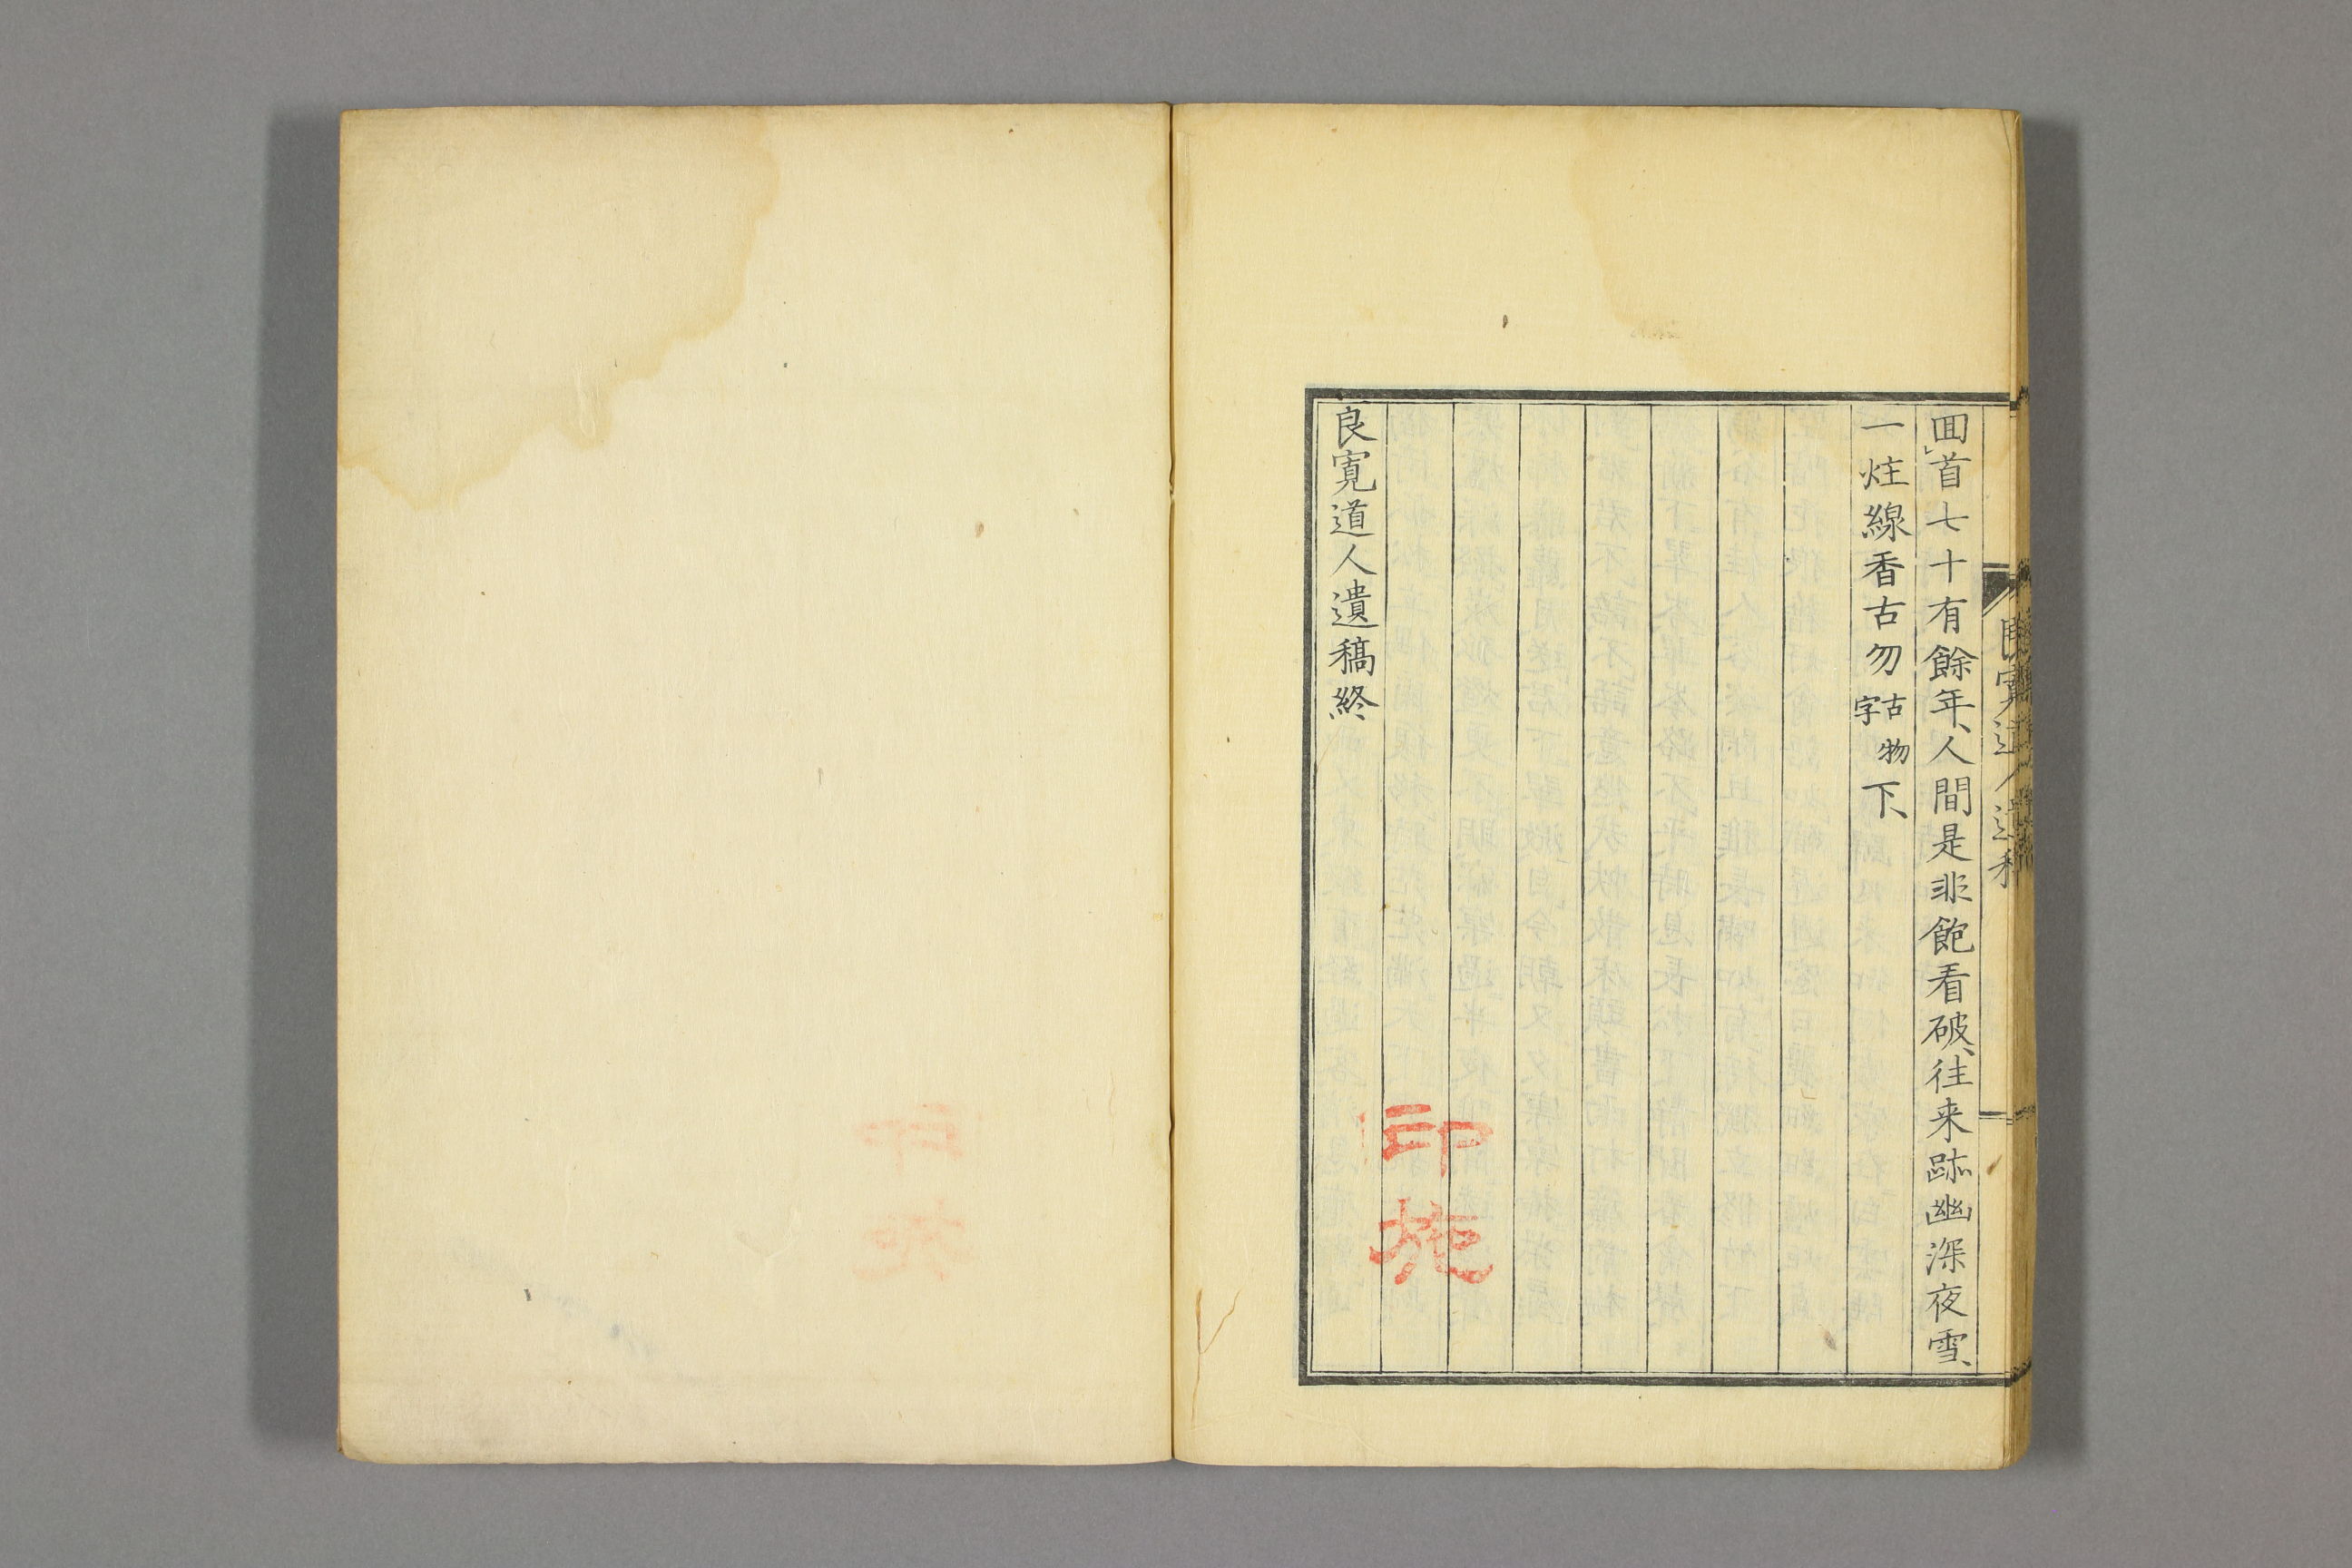 囬首七十有餘年、人間是非飽看破、往来跡幽深夜雪、
一炷線香古匆古物字下、
良寬道人遺稿終
印施